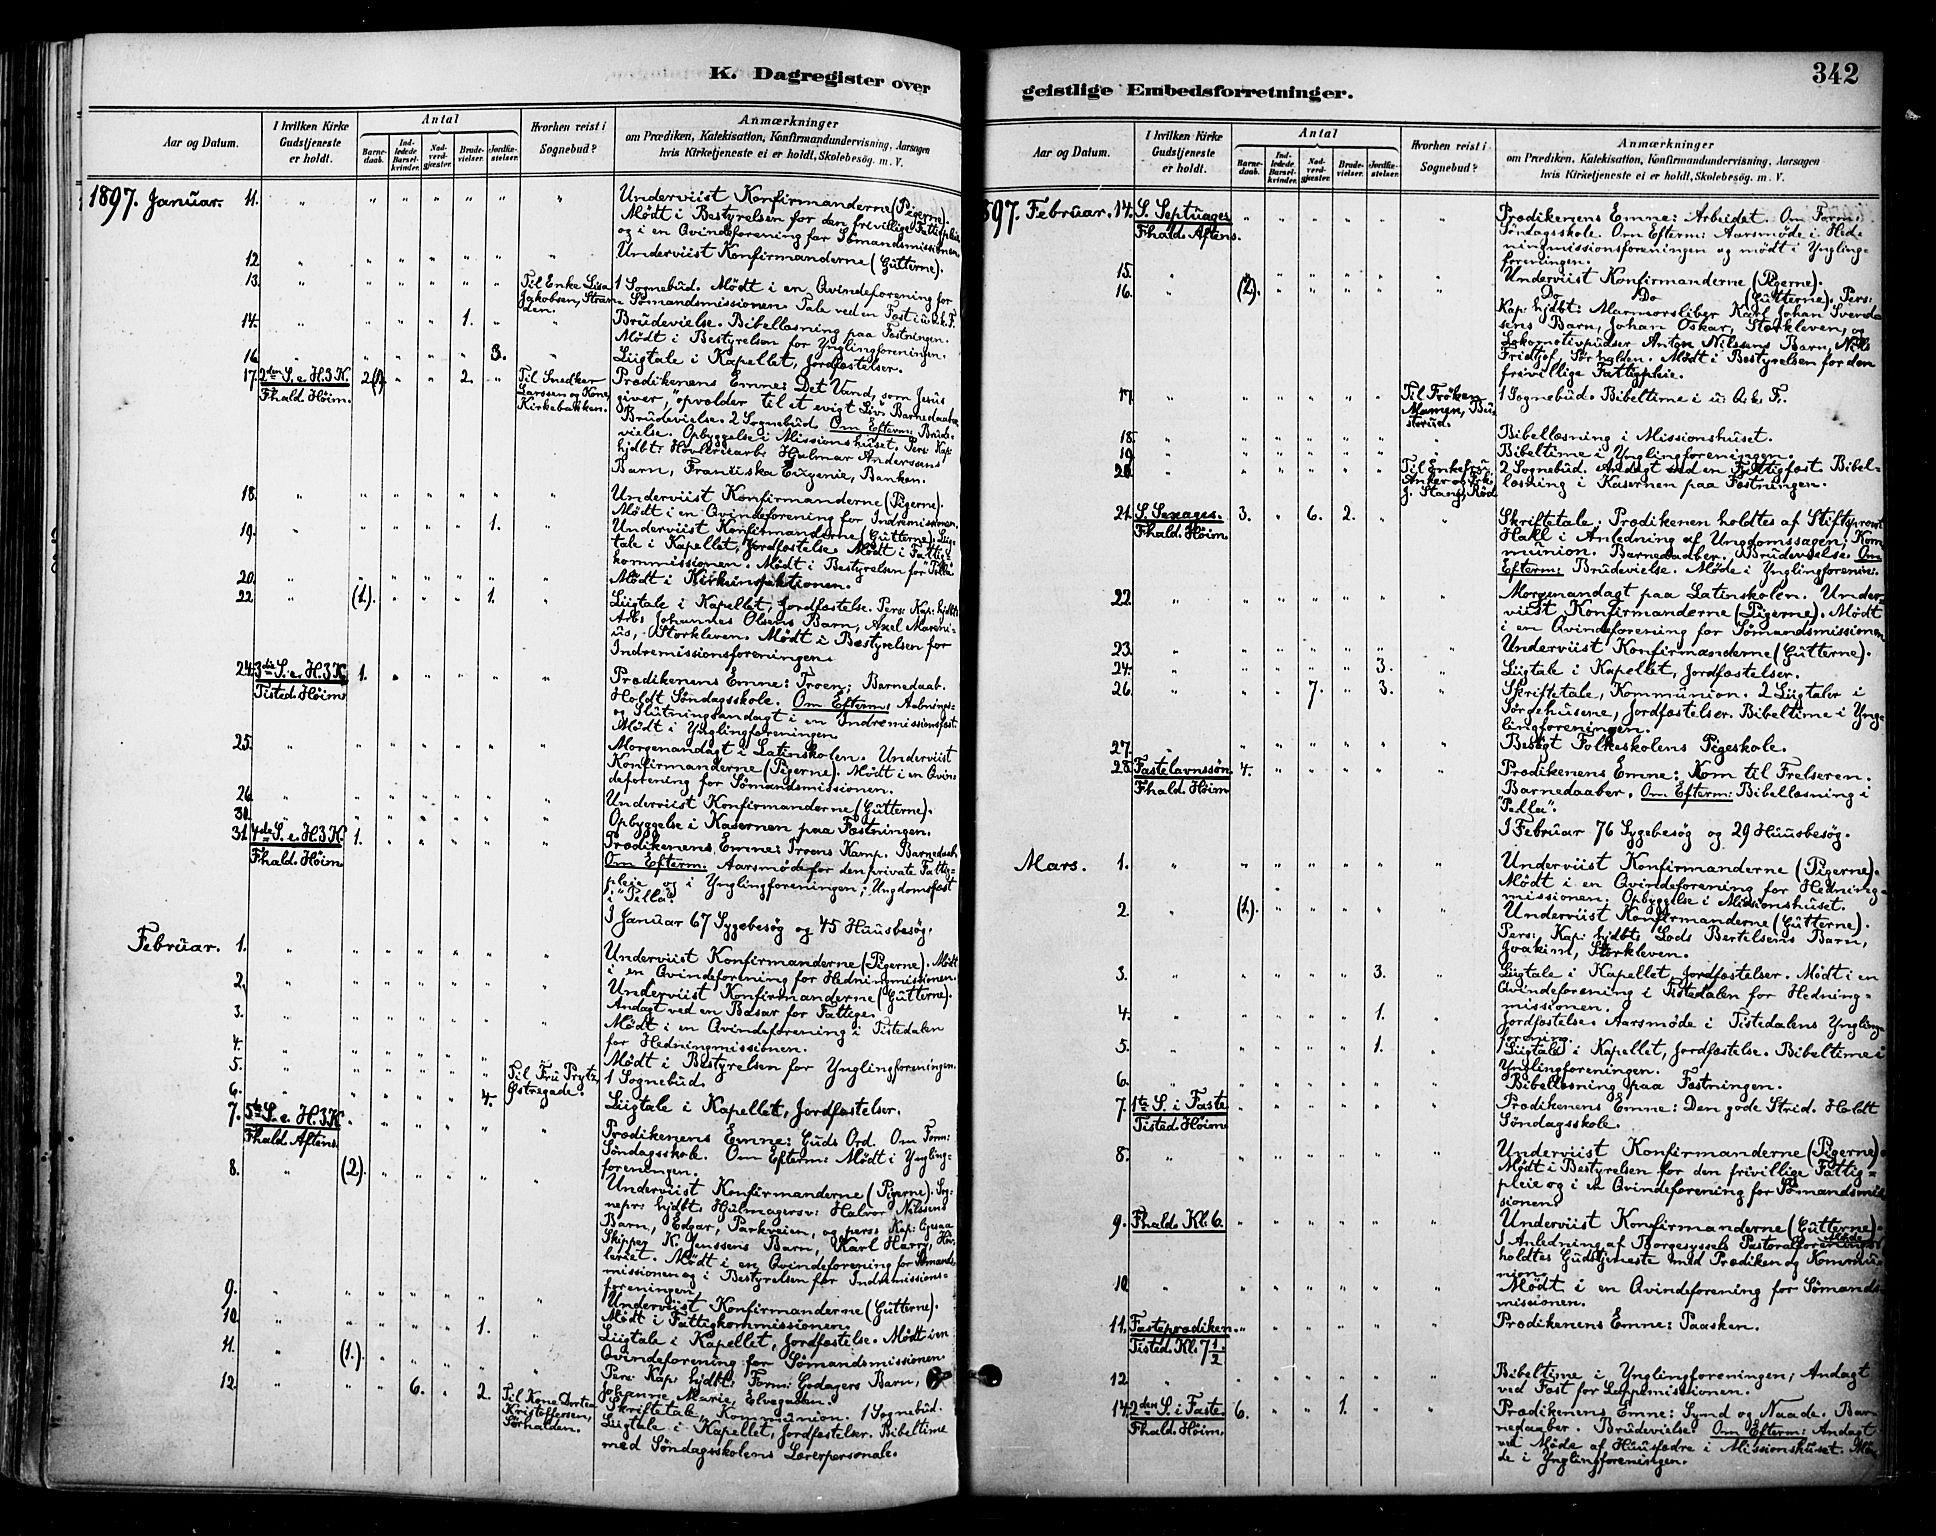 K. Dagregister over
Aar og Datum.
I hvilken Kirke Gudstjeneste er holdt.
Antal
Barnedaab.
Indledede Barselkvinder.
Nadverdgjæster.
Brudevielser.
Jordfæstelser.
Hvorhen reist i Sognebud?
Anmærkninger
om Prædiken, Katekisation, Konfirmandundervisning, Aarsagen
hvis Kirketjeneste ei er holdt, Skolebesøg. m. V.
1897. Januar. 11. Underviist Konfirmanderne (Pigerne).
Mødt i Bestyrelsen for den frivillige Fattigpleie
og i en Qvindeforening for Sømandsmissionen.
12. Underviist Konfirmanderne (Gutterne).
13. Til Enke Lisa Jakobsen, Stranden. 1 Sognebud. Mødt i en Qvindeforening for
Sømandsmissionen. Tale ved en Fest i u. k. F.
14. 1. Brudevielse. Bibellæsning paa Fæstningen.
Mødt i Bestyrelsen for Ynglingforeningen.
16. 3. Liigtale i Kapellet, Jordfæstelser.
17. 2den S. e. H.3.K. Fhald. Høim. 2(1). 2. Til Snedker Larssen og Kone, Kirkebakken. Prædikenens Emne: Det Vand, som Jesus
giver, "opvælder til et evigt Liv". Barnedaaber.
Brudevielse. 2 Sognebud. Om Efterm: Brude-
vielse. Opbyggelse i Missionshuset. Pers: Kap:
hjdbt: Høvleriearb: Hjalmar Anderssens
Barn, Franciska Eugenie, Banken.
18. Underviist Konfirmanderne (Pigerne).
Mødt i en Qvindeforening for Indremissionen.
19. 1. Underviist Konfirmanderne (Gutterne). Liig-
tale i Kapellet, Jordfæstelse. Mødt i Fattig-
kommissionen. Mødt i Bestyrelsen for "Pella"
20. Mødt i Kirkeinspektionen.
22. (1). 1. Liigtale i Kapellet, Jordfæstelse. Pers: Kap: hjdbt:
Arb: Johannes Olsens Barn, Axel Mareni-
us, Storkleven. Mødt i Bestyrelsen for
Indremissionsforeningen.
24. 3die S. e. H.3.K. Tisted. Høim. 1. Prædikenens Emne: Troen; Barnedaab.
Holdt Søndagsskole. Om Efterm: Aabnings-
og Slutningsandagt i en Indremissionsfest.
Mødt i Ynglingforeningen.
25. Morgenandagt i Latinskolen. Underviist
Konfirmanderne (Pigerne). Mødt i en Qvin-
deforening for Sømandsmissionen.
26. Underviist Konfirmanderne (Gutterne).
30. Opbyggelse i Kasernen paa Fæstningen.
31. 4de S. e. H.3.K. Fhald. Høim. 1. Prædikenens Emne: Troens Kamp. Barnedaab.
Om Efterm. Aarsmøde for den private Fattig-
pleie og i Ynglingforeningen; Ungdomsfest
i "Pella".
I Januar 67 Sygebesøg og 45 Huusbesøg.
Februar. 1. Underviist Konfirmanderne (Pigerne). Mødt
i en Qvindeforening for Hedningmissionen.
2. Underviist Konfirmanderne (Gutterne).
3. Andagt ved en Basar for Fattige.
4. Mødt i en Qvindeforening i Tistedalen
for Hedningmissionen.
5. Mødt i Bestyrelsen for Ynglingforeningen.
Til Fru Prytz, Østregade. 1 Sognebud.
6. 4. Liigtale i Kapellet, Jordfæstelser.
7. 5te S. e. H.3.K. Fhald. Aftens. Prædikenens Emne: Guds Ord. Om Form:
Søndagsskole. Om Efterm: Mødt i Yngling-
foreningen.
8. (2). Underviist Konfirmanderne (Pigerne). Sog-
nepr: hjdbt: Hjulmagersv: Halvor Nilssens
Barn, Edgar, Parkveien, og pers: Kap: ligesaa
Skipper K. Jenssens Barn, Karl Harry, Høv-
leriet. Mødt i en Qvindeforening for Sømands-
missionen og i Bestyrelsen for Indremissions-
foreningen.
9. Underviist Konfirmanderne (Gutterne).
Mødt i Fattigkommissionen.
10. 1. Liigtale i Kapellet, Jordfæstelse. Mødt i en
Qvindeforening for Sømandsmissionen.
11. (1.) Pers: Kap: hjdbt: Form: Godagers Barn,
Johanne Marie, Elvegaden.
12. 6. 2. Til Kone Dortea Kristoffersen, Sørhalden. Skriftetale, Kommunion. 1 Sognebud.
Liigtale i Kapellet, Jordfæstelser. Bibeltime
med Søndagsskolens Lærerpersonale.
342
geistlige Embedsforretninger.
Aar og Datum.
I hvilken Kirke Gudstjeneste er holdt.
Antal
Barnedaab.
Indledede Barselkvinder.
Nadverdgjæster.
Brudevielser.
Jordfæstelser.
Hvorhen reist i Sognebud?
Anmærkninger
om Prædiken, Katekisation, Konfirmandundervisning, Aarsagen
hvis Kirketjeneste ei er holdt, Skolebesøg. m. V.
897. Februar. 14. S. Septuages. Fhald. Aftens. Prædikenens Emne: Arbeidet. Om Form:
Søndagsskole. Om Efterm: Aarsmøde i Hed-
ningmissionsforeningen og mødt i Yngling-
foreningen.
15. Underviist Konfirmanderne (Pigerne).
16. (2). Do Do (Gutterne). Pers:
Kap: hjdbt: Marmorsliber Karl Johan Svend-
sens Barn, Johan Oskar, Storkleven, og
Lokomotivpudser Anton Nilssens Barn, Nils
Fridtjof, Sørhalden. Mødt i Bestyrelsen for den
frivillige Fattigpleie.
17. Til Frøken Mamen, Busterud. 1 Sognebud. Bibeltime i u. k. F.
18. Bibellæsning i Missionshuset.
19. Bibeltime i Ynglingforeningen.
20. Til Enkefru Anker og Frk. J. Stang, Rød. 2 Sognebud. Andagt ved en Fattigfest. Bibel-
læsning i Kasernen paa Fæstningen.
21. S. Sexages. Fhald. Høim. 3. 6. 2. Skriftetale; Prædikenen holdtes af Stiftsprovst
Hall i Anledning af Ungdomssagen; Kom-
munion. Barnedaaber. Brudevielse. Om
Efterm: Brudevielse. Møde i Ynglingforenin:
22. Morgenandagt paa Latinskolen. Under-
viist Konfirmanderne (Pigerne). Mødt
i en Qvindeforening for Sømandsmissionen
23. Underviist Konfirmanderne (Gutterne).
24. 3. Liigtale i Kapellet, Jordfæstelser.
26. 7. 3. Skriftetale, Kommunion. 2 Liigtaler i
Sørgehusene, Jordfæstelser. Bibeltime i Yng-
lingforeningen.
27. Besøgt Folkeskolens Pigeskole.
28. Fastelavnssøn. Fhald. Høim. 4. Prædikenens Emne: Kom til Frelseren.
Barnedaaber. Om Efterm: Bibellæsning i
"Pella".
I Februar 76 Sygebesøg og 29 Huusbesøg.
Mars. 1. Underviist Konfirmanderne (Pigerne).
Mødt i en Qvindeforening for Hedning-
missionen. Opbyggelse i Missionshuset.
2. (1). Underviist Konfirmanderne (Gutterne).
Pers: Kap: hjdbt: Lods Bertelsens Barn,
Joakim, Storkleven.
3. 3. Liigtale i Kapellet, Jordfæstelser. Mødt i en
Qvindeforening i Tistedalen for Hedning-
missionen.
4. 1. Jordfæstelse. Aarsmøde i Tistedalens Yngling-
forening.
5. 1. Liigtale i Kapellet, Jordfæstelse. Bibeltime i
Ynglingforeningen.
6. Bibellæsning paa Fæstningen.
7. 1ste S. i Faste Tisted. Høim. Prædikenens Emne: Den gode Strid. Holdt
Søndagsskole.
8. Underviist Konfirmanderne (Pigerne).
Mødt i Bestyrelsen for den frivillige Fattig-
pleie og i en Qvindeforening for Sømandsmis-
sionen.
9. Fhald. Kl. 6. Underviist Konfirmanderne (Gutterne).
I Anledning af Borgesyssels Pastoralforenings Møde
holdtes Gudstjeneste med Prædiken og Kommu-
nion.
10. Mødt i en Qvindeforening for Sømands-
missionen.
11. Fasteprædiken. Tisted. Kl. 7 1/2. Prædikenens Emne: Paasken.
12. Bibeltime i Ynglingforeningen; Andagt
ved Fest for Lappemissionen.
14. 2den S. i Faste. Fhald. Høim. 6. 1. Prædikenens Emne: Synd og Naade. Bar-
nedaaber. Brudevielse. Om Efterm: Andagt
ved Møde af Huusfædre i Missionshuset. Mø-
de i Ynglingforeningen.